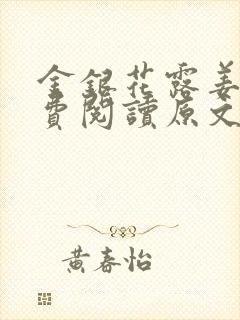 金銀花露姜
費閱讀原文
黃春怡